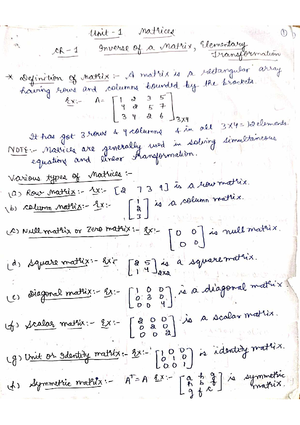 Unit - 1 Matrices
①
Ch - 1 Inverse of a Matrix, Elementary
Transformation
* Definition of Matrix :- A matrix is a rectangular array
having rows and columns bounded by the brackets.
Ex:- A= [1 2 3 5
4 2 5 7
3 4 2 6] 3x4
It has got 3 rows & 4 columns & in all 3x4=12 elements.
NOTE:- Matrices are generally used in solving simultaneous
equation and linear transformation.
Various types of Matrices :-
(a) Row matrix:- Ex:- [2 7 3 4] is a row matrix.
(b) Column matrix:- Ex:- [1
2
3] is a column matrix.
(c) Null matrix or Zero matrix:- Ex:- [0 0
0 0] is null matrix.
(d) Square matrix:- Ex:- [2 5
1 4] 2x2 is a square matrix.
(e) Diagonal matrix:- Ex:- [1 0 0
0 3 0
0 0 4] is a diagonal matrix
(f) Scalar matrix:- Ex:- [2 0 0
0 2 0
0 0 2] is a scalar matrix.
(g) Unit or Identity matrix:- Ex:- [1 0 0
0 1 0
0 0 1] is identity matrix.
(h) Symmetric matrix:- A^T=A Ex:- [a h g
h b f
g f c] is symmetric
matrix.